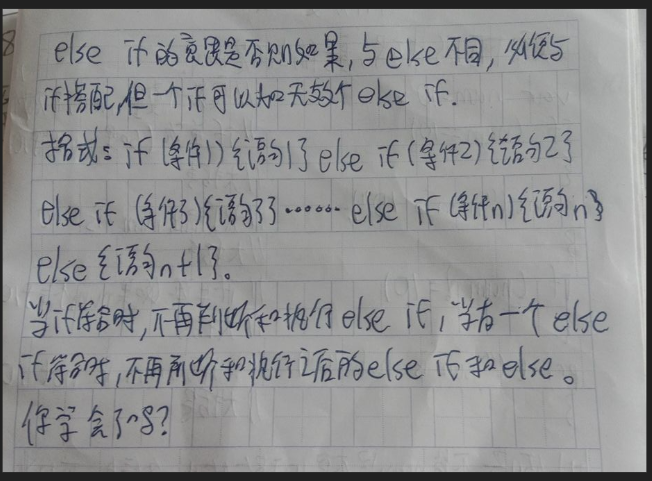 else if的意思是否则如果,与else不同,必须与
if搭配,但一个if可以加无数个else if.
格式:if(条件1){语句1}else if(条件2){语句2}
else if(条件3){语句3}……else if(条件n){语句n}
else{语句n+1}。
当if符合时,不再判断和执行else if,当有一个else
if符合时,不再判断和执行之后的else if和else。
你学会了吗?